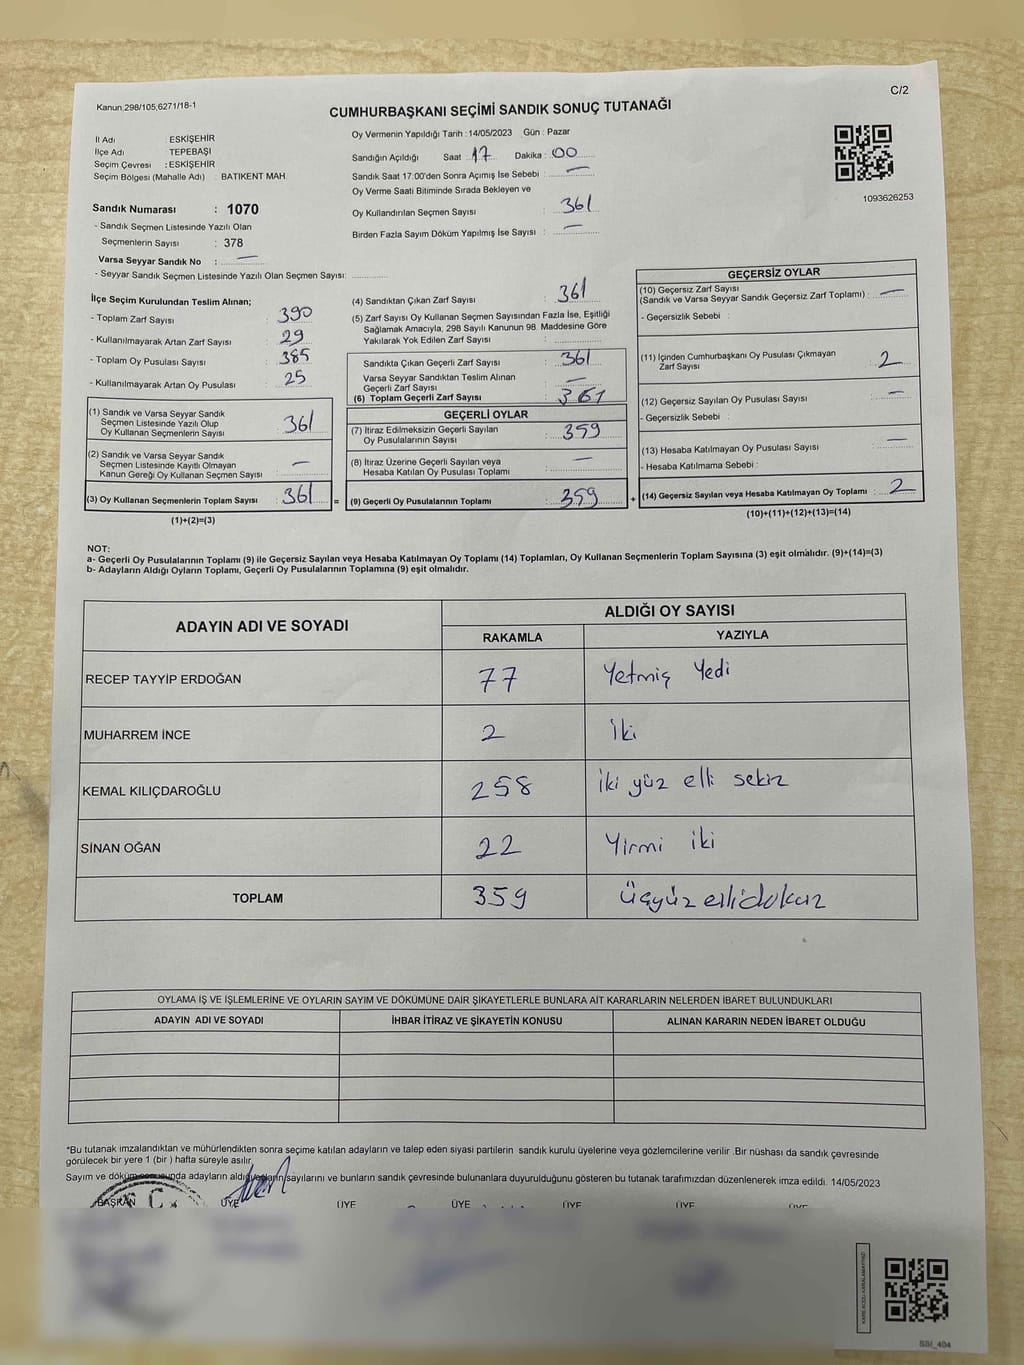 Kanun:298/105,6271/18-1
C/2
CUMHURBAŞKANI SEÇİMİ SANDIK SONUÇ TUTANAĞI
İl Adı : ESKİŞEHİR
İlçe Adı TEPEBAŞI
Seçim Çevresi : ESKİŞEHİR
Seçim Bölgesi (Mahalle Adı) : BATIKENT MAH.
Oy Vermenin Yapıldığı Tarih : 14/05/2023 Gün : Pazar
Sandığın Açıldığı Saat : 17 Dakika : 00
Sandık Saat 17:00'den Sonra Açılmış İse Sebebi : —
Oy Verme Saati Bitiminde Sırada Bekleyen ve
Oy Kullandırılan Seçmen Sayısı : 361
Birden Fazla Sayım Döküm Yapılmış İse Sayısı : —
1093626253
Sandık Numarası : 1070
- Sandık Seçmen Listesinde Yazılı Olan
Seçmenlerin Sayısı : 378
Varsa Seyyar Sandık No : —
- Seyyar Sandık Seçmen Listesinde Yazılı Olan Seçmen Sayısı:
İlçe Seçim Kurulundan Teslim Alınan;
- Toplam Zarf Sayısı : 390
- Kullanılmayarak Artan Zarf Sayısı : 29
- Toplam Oy Pusulası Sayısı : 385
- Kullanılmayarak Artan Oy Pusulası : 25
(1) Sandık ve Varsa Seyyar Sandık
Seçmen Listesinde Yazılı Olup
Oy Kullanan Seçmenlerin Sayısı : 361
(2) Sandık ve Varsa Seyyar Sandık
Seçmen Listesinde Kayıtlı Olmayan
Kanun Gereği Oy Kullanan Seçmen Sayısı : —
(3) Oy Kullanan Seçmenlerin Toplam Sayısı : 361 =
(1)+(2)=(3)
(4) Sandıktan Çıkan Zarf Sayısı : 361
(5) Zarf Sayısı Oy Kullanan Seçmen Sayısından Fazla İse, Eşitliği
Sağlamak Amacıyla, 298 Sayılı Kanunun 98. Maddesine Göre
Yakılarak Yok Edilen Zarf Sayısı :
Sandıkta Çıkan Geçerli Zarf Sayısı : 361
Varsa Seyyar Sandıktan Teslim Alınan
Geçerli Zarf Sayısı : —
(6) Toplam Geçerli Zarf Sayısı : 361
GEÇERLİ OYLAR
(7) İtiraz Edilmeksizin Geçerli Sayılan
Oy Pusulalarının Sayısı : 359
(8) İtiraz Üzerine Geçerli Sayılan veya
Hesaba Katılan Oy Pusulası Toplamı : —
(9) Geçerli Oy Pusulalarının Toplamı : 359 +
GEÇERSİZ OYLAR
(10) Geçersiz Zarf Sayısı
(Sandık ve Varsa Seyyar Sandık Geçersiz Zarf Toplamı) : —
- Geçersizlik Sebebi :
(11) İçinden Cumhurbaşkanı Oy Pusulası Çıkmayan
Zarf Sayısı : 2
(12) Geçersiz Sayılan Oy Pusulası Sayısı : —
- Geçersizlik Sebebi :
(13) Hesaba Katılmayan Oy Pusulası Sayısı : —
- Hesaba Katılmama Sebebi :
(14) Geçersiz Sayılan veya Hesaba Katılmayan Oy Toplamı : 2
(10)+(11)+(12)+(13)=(14)
NOT:
a- Geçerli Oy Pusulalarının Toplamı (9) ile Geçersiz Sayılan veya Hesaba Katılmayan Oy Toplamı (14) Toplamları, Oy Kullanan Seçmenlerin Toplam Sayısına (3) eşit olmalıdır. (9)+(14)=(3)
b- Adayların Aldığı Oyların Toplamı, Geçerli Oy Pusulalarının Toplamına (9) eşit olmalıdır.
ADAYIN ADI VE SOYADI ALDIĞI OY SAYISI
RAKAMLA YAZIYLA
RECEP TAYYİP ERDOĞAN 77 Yetmiş Yedi
MUHARREM İNCE 2 İki
KEMAL KILIÇDAROĞLU 258 iki yüz elli sekiz
SİNAN OĞAN 22 Yirmi iki
TOPLAM 359 Üçyüz ellidokuz
OYLAMA İŞ VE İŞLEMLERİNE VE OYLARIN SAYIM VE DÖKÜMÜNE DAİR ŞİKAYETLERLE BUNLARA AİT KARARLARIN NELERDEN İBARET BULUNDUKLARI
ADAYIN ADI VE SOYADI İHBAR İTİRAZ VE ŞİKAYETİN KONUSU ALINAN KARARIN NEDEN İBARET OLDUĞU
*Bu tutanak imzalandıktan ve mühürlendikten sonra seçime katılan adayların ve talep eden siyasi partilerin sandık kurulu üyelerine veya gözlemcilerine verilir .Bir nüshası da sandık çevresinde
görülecek bir yere 1 (bir ) hafta süreyle asılır.
Sayım ve döküm sonunda adayların aldığı oyların sayılarını ve bunların sandık çevresinde bulunanlara duyurulduğunu gösteren bu tutanak tarafımızdan düzenlenerek imza edildi. 14/05/2023
BAŞKAN ÜYE ÜYE ÜYE ÜYE ÜYE ÜYE